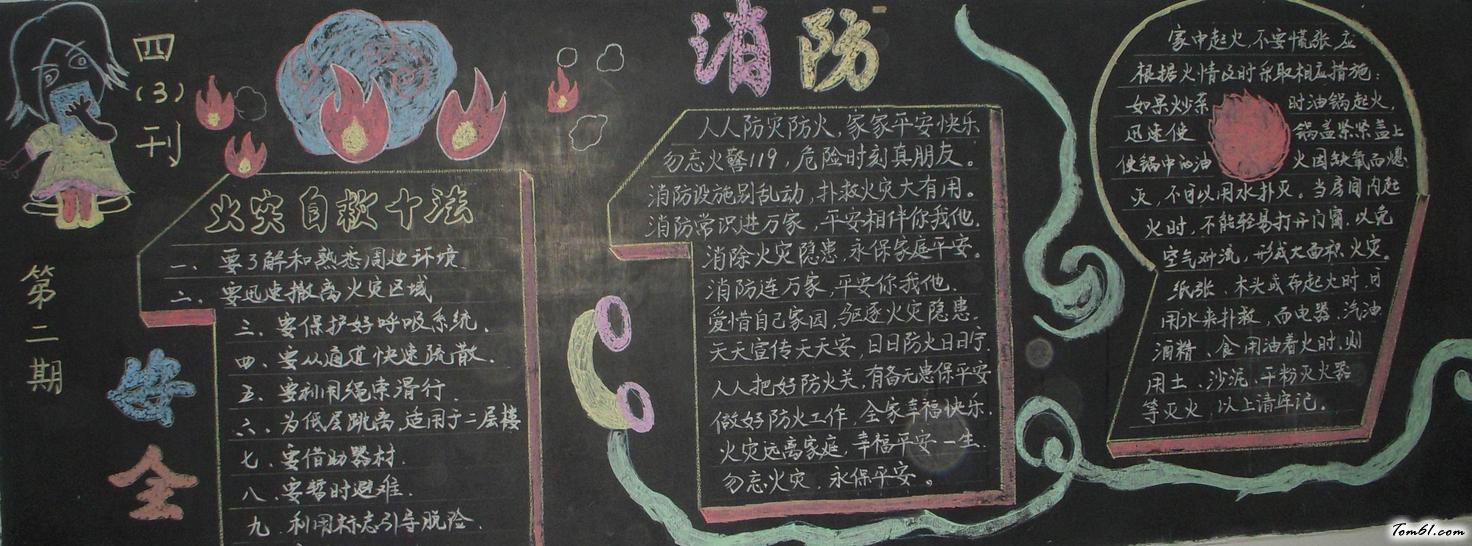 四(3)刊
第二期
安全
消防
火灾自救十法
一、要了解和熟悉周边环境.
二、要迅速撤离火灾区域
三、要保护好呼吸系统.
四、要从通道快速疏散.
五、要利用绳索滑行.
六、为低层跳离,适用于二层楼
七、要借助器材.
八、要暂时避难.
九、利用标志引导脱险.
人人防灾防火,家家平安快乐
勿忘火警119,危险时刻真朋友。
消防设施别乱动,扑救火灾大有用。
消防常识进万家,平安相伴你我他.
消除火灾隐患,永保家庭平安。
消防连万家,平安你我他.
爱惜自己家园,驱逐火灾隐患.
天天宣传天天安,日日防火日日宁.
人人把好防火关,有备无患保平安
做好防火工作,全家幸福快乐.
火灾远离家庭,幸福平安一生.
勿忘火灾,永保平安。
家中起火,不要慌张,应
根据火情及时采取相应措施:
如果炒菜时油锅起火,
迅速使锅盖紧紧盖上
使锅中的油火因缺氧而熄
灭,不可以用水扑灭。当房间内起
火时,不能轻易打开门窗,以免
空气对流,形成大面积火灾。
纸张、木头或布起火时,可
用水来扑救,而电器、汽油
酒精、食用油着火时,则
用土、沙泥、干粉灭火器
等灭火,以上请牢记。
Tom61.com